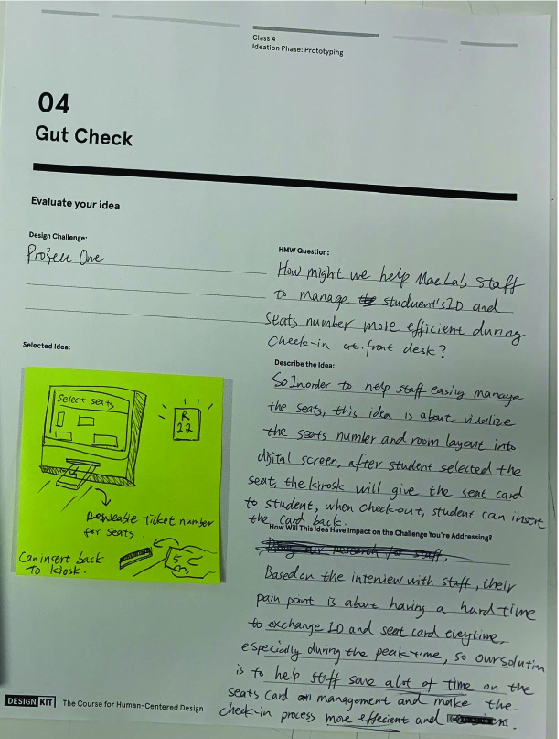 Class 4
Ideation Phase: Prototyping
04
Gut Check
Evaluate your idea
Design Challenge:
Project One
HMW Question:
How might we help MaeLab staff
to manage studuent's ID and
seats number more efficient during
Check-in at front desk?
Selected Idea:
Select seats
R
22
Reuseable ticket number
for seats
Can insert back
to kiosk.
Describe the Idea:
So Inorder to help staff easing manage
the seats, this idea is about visulize
the seats number and room layout into
digital screen, after student selected the
seat, the kiosk will give the seat card
to student, when check-out, student can insert
the card back.
How Will This Idea Have Impact on the Challenge You're Addressing?
Based on the interview with staff, their
pain point is about having a hard time
to exchange ID and seat card everytime,
especially during the peak time, so our solution
is to help staff save alot of time on the
seats card on management and make the
check-in process more efficient and
DESIGN KIT The Course for Human-Centered Design